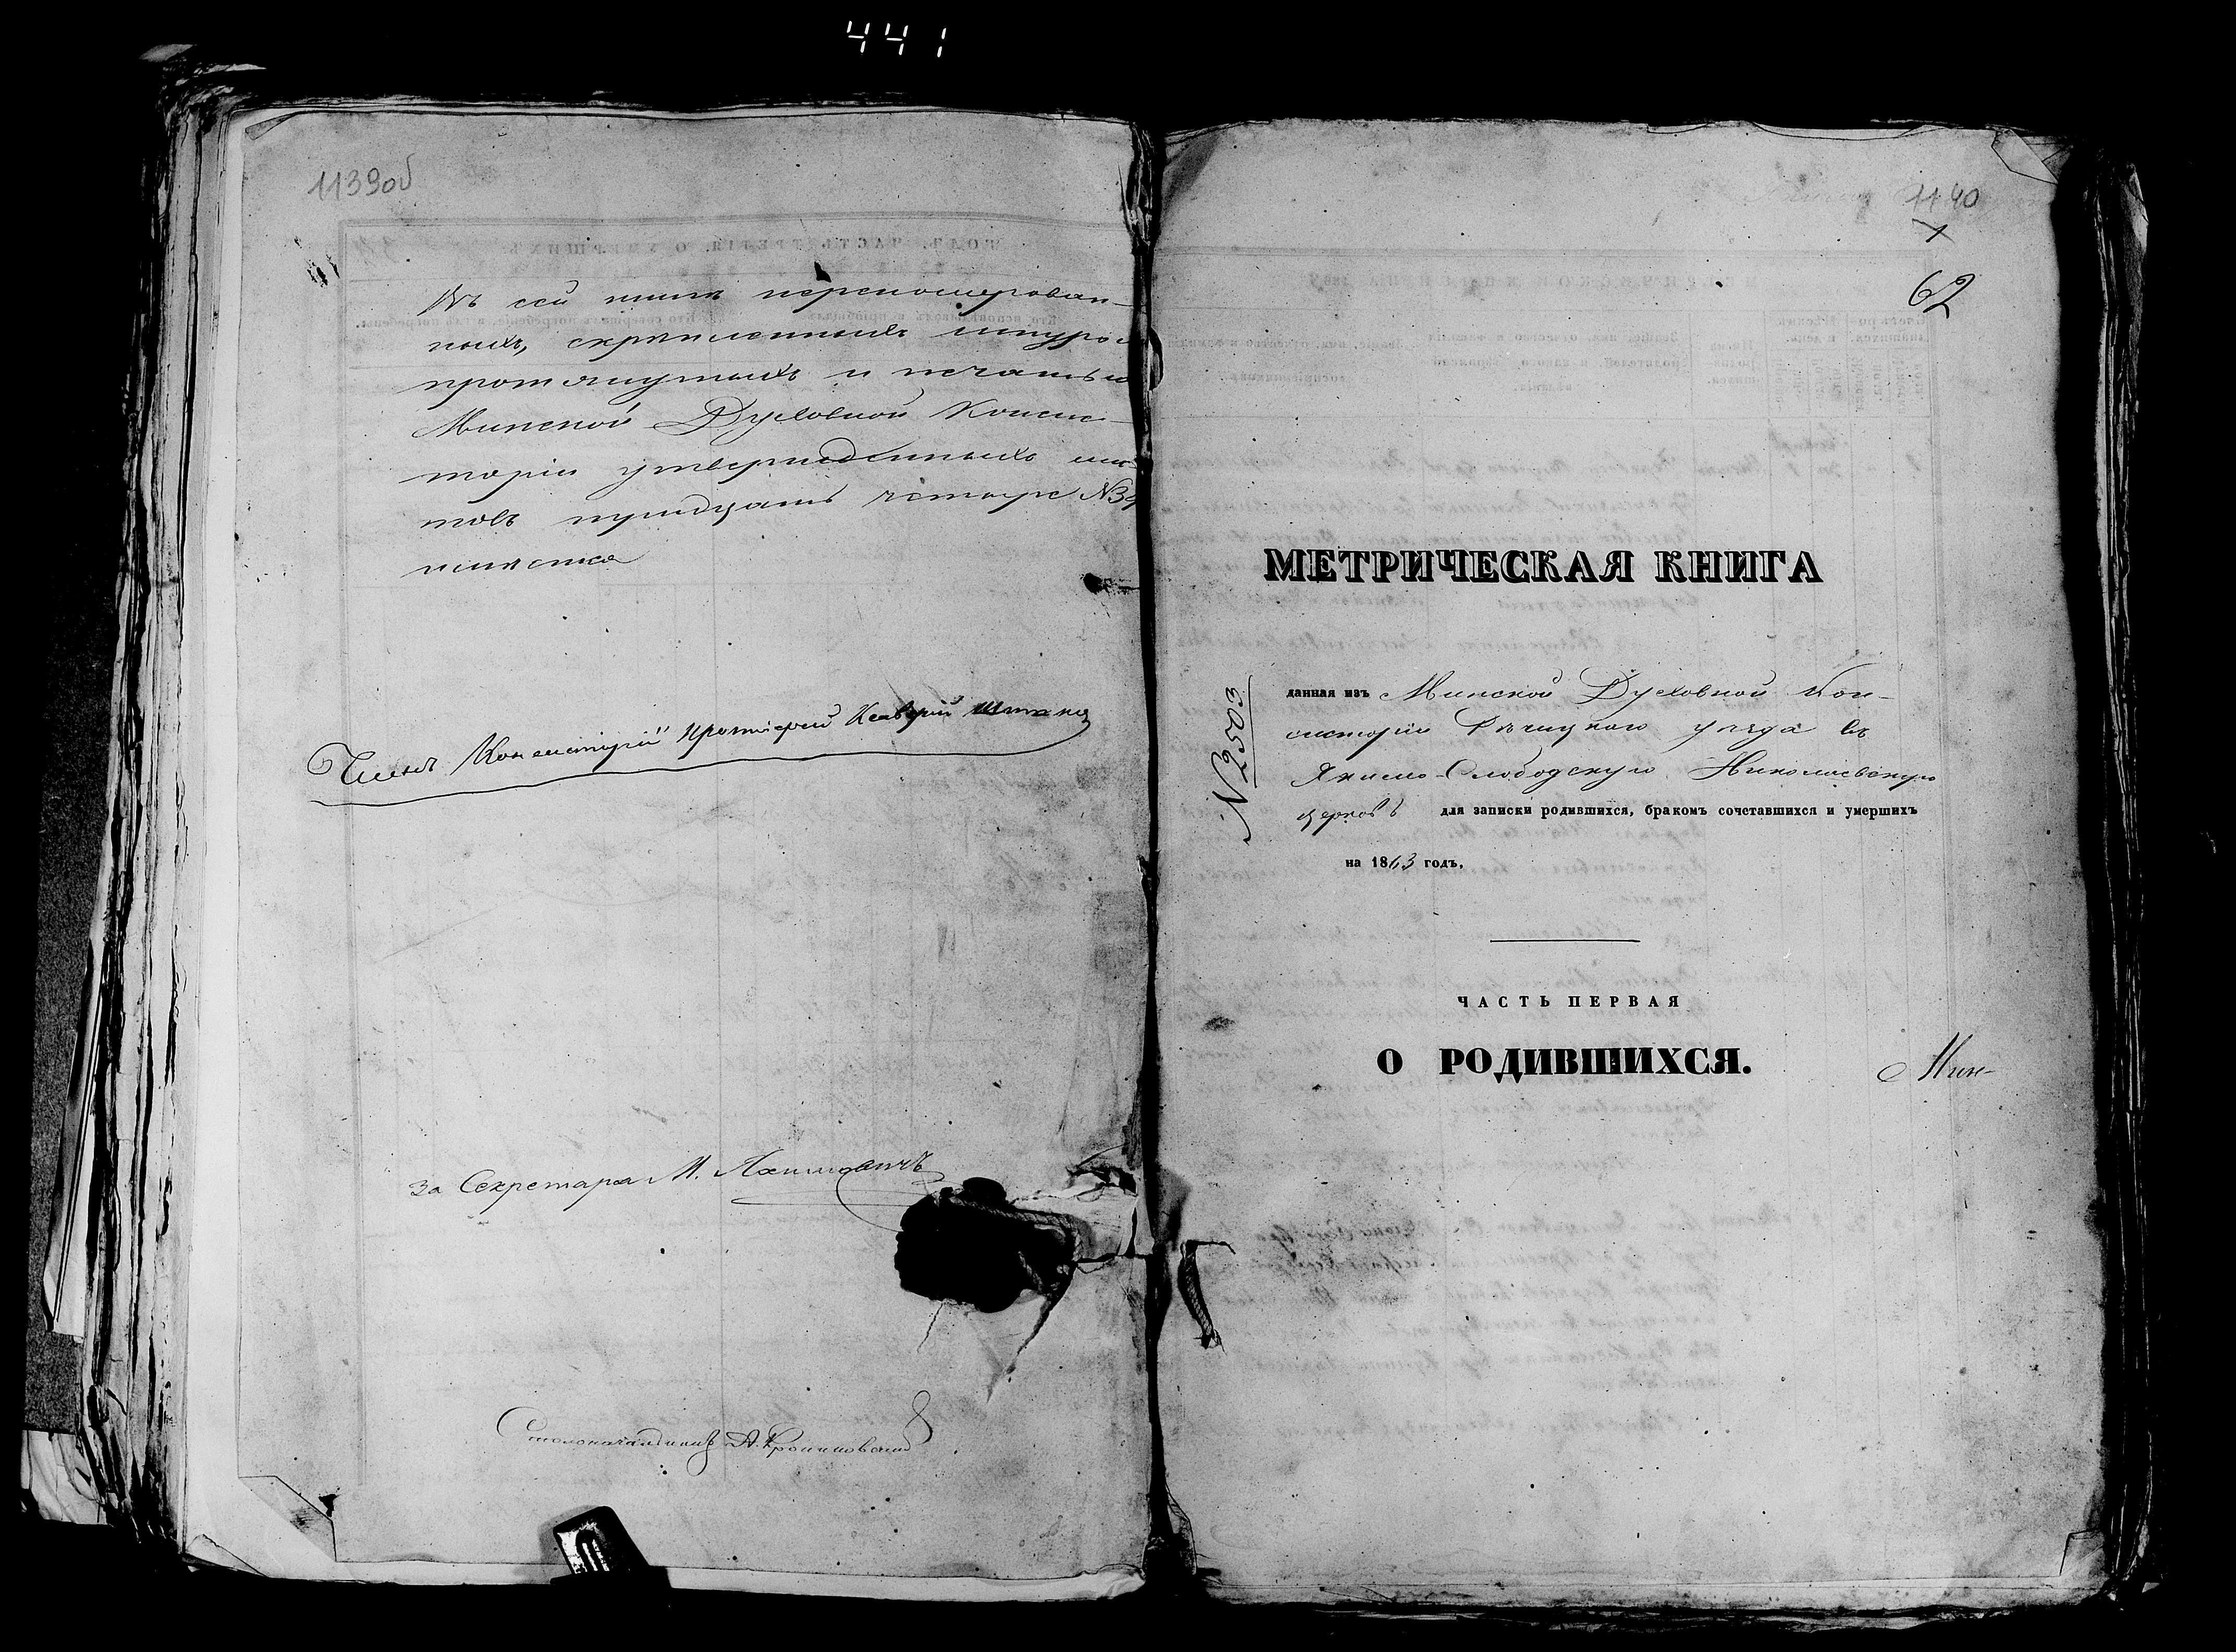 441
1139об
Въ сей книгѣ переномерован-
ныхъ, скрѣпленныхъ шнуро
протянутыхъ и печатью
Минской Духовной Консис-
торіи утвержденныхъ лис-
товъ тридцать четыре №34
листа
Членъ Консисторіи Протоіерей
За Секретаря М.
Столоначальникъ А.
1140
62
МЕТРИЧЕСКАЯ КНИГА
№2503
данная изъ Минской Духовной Кон-
систоріи Рѣчицкаго уѣзда въ
Якимо-Слободскую Николаевскую
церковь для записки родившихся, бракомъ сочетавшихся и умершихъ
на 1863 годъ.
ЧАСТЬ ПЕРВАЯ
О РОДИВШИХСЯ.
Мин-